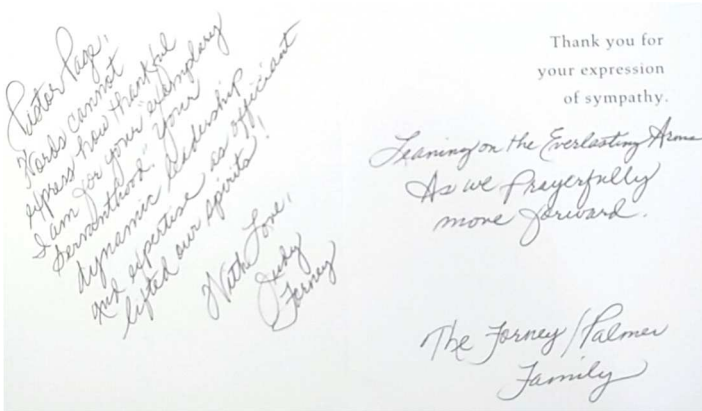 Pastor Page,
Words cannot
express how thankful
I am for your exemplary
"Servanthood." Your
dynamic leadership
and expertise as officiant
lifted our spirits!
With Love,
Judy
Forney
Thank you for
your expression
of sympathy.
Leaning on the Everlasting Arms
As we Prayerfully
move forward.
The Forney/Palmer
Family